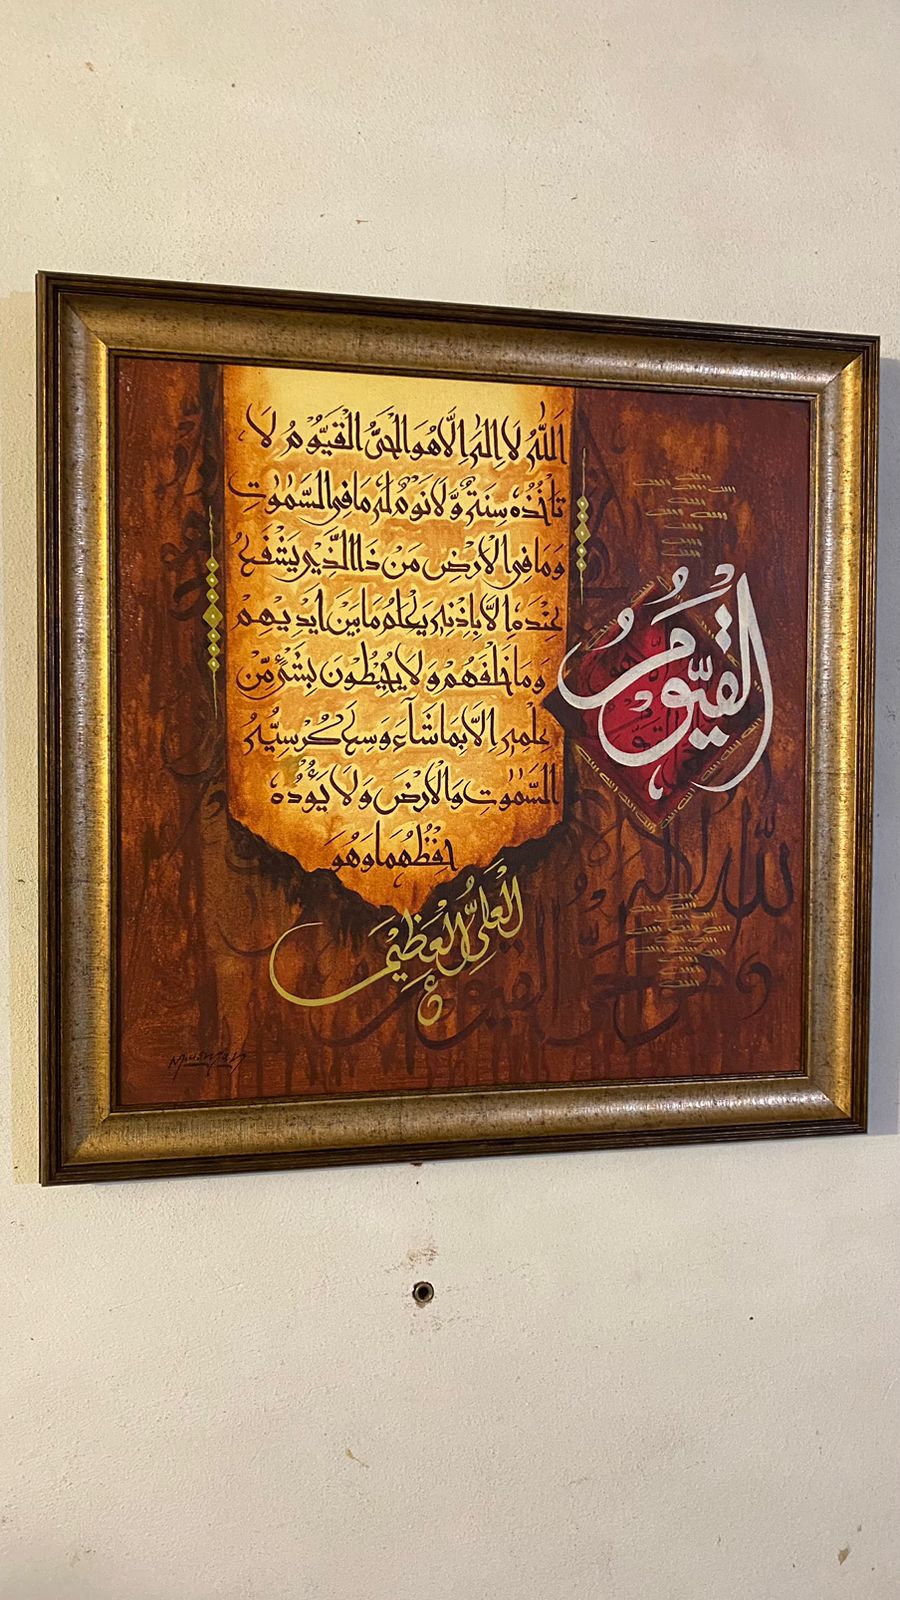 اَللّٰهُ لَا اِلٰهَ اِلَّا هُوَ الْحَيُّ الْقَيُّوْمُ لَا
تَاْخُذُهٗ سِنَةٌ وَّلَا نَوْمٌ لَهٗ مَا فِي السَّمٰوٰتِ
وَمَا فِي الْاَرْضِ مَنْ ذَا الَّذِيْ يَشْفَعُ
عِنْدَهٗ اِلَّا بِاِذْنِهٖ يَعْلَمُ مَا بَيْنَ اَيْدِيْهِمْ
وَمَا خَلْفَهُمْ وَلَا يُحِيْطُوْنَ بِشَيْءٍ مِّنْ
عِلْمِهٖ اِلَّا بِمَا شَآءَ وَسِعَ كُرْسِيُّهُ
السَّمٰوٰتِ وَالْاَرْضَ وَلَا يَؤُدُهٗ
حِفْظُهُمَا وَهُوَ
الْعَلِيُّ الْعَظِيْمُ
ع
الْقَيُّوْمُ
اللّٰه لا اله الا
هو الحي القيوم